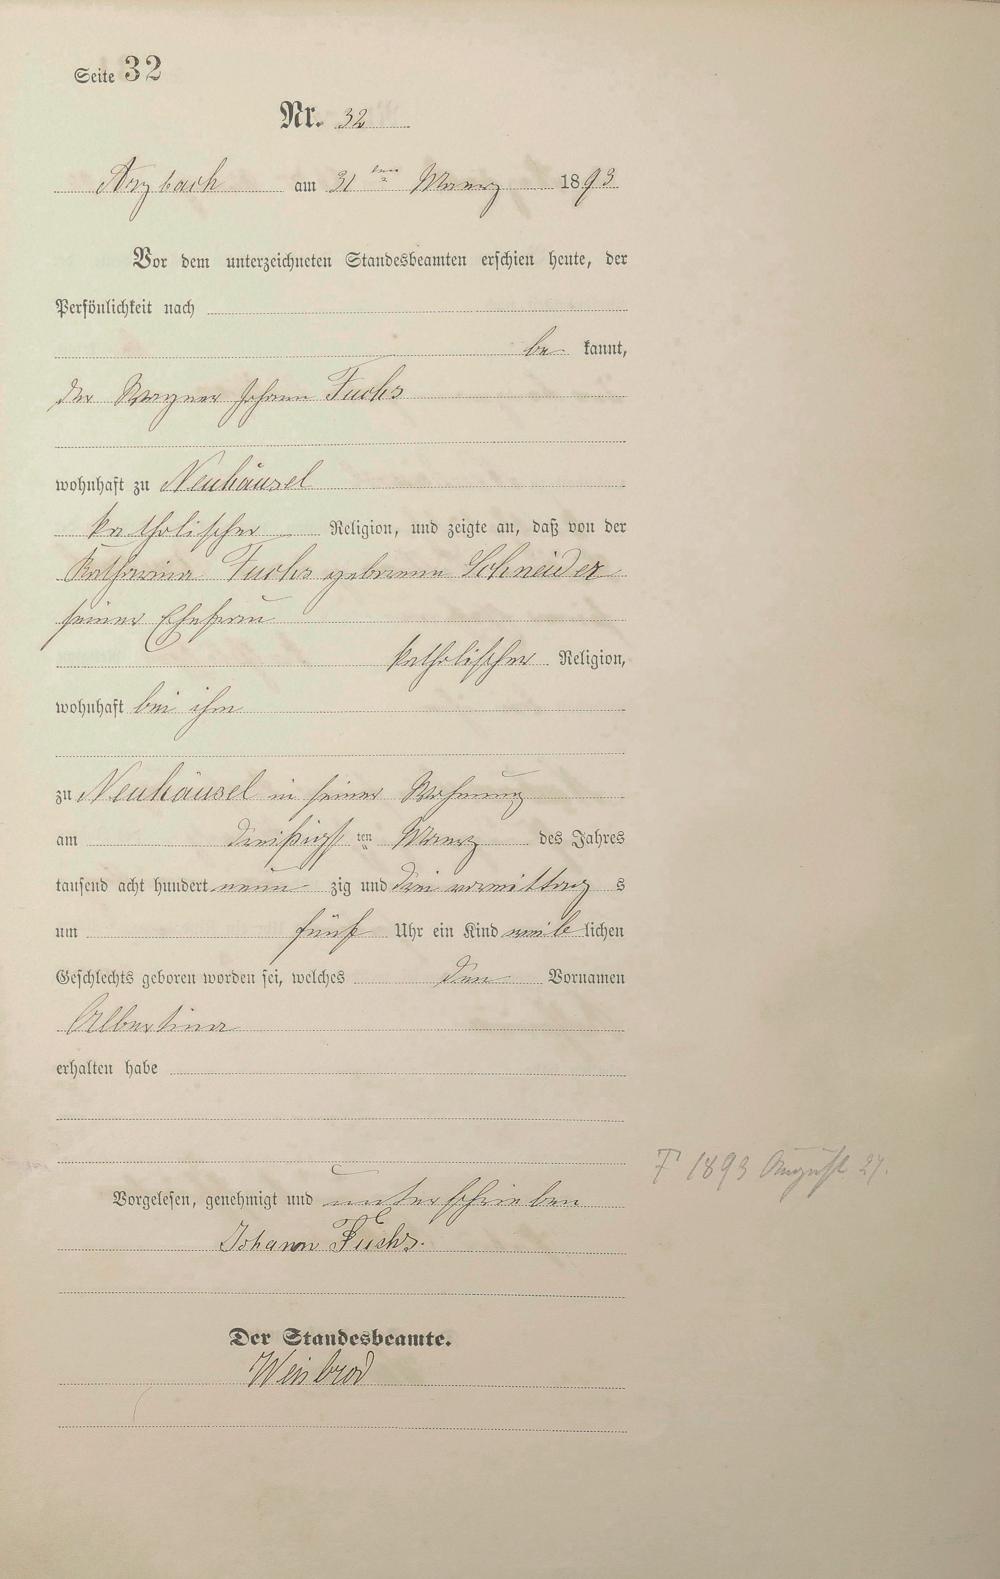 Seite 32
Nr. 32
Arzbach am 31ten Maerz 1893
Vor dem unterzeichneten Standesbeamten erschien heute, der
Persönlichkeit nach
be kannt,
der Wagner Johann Fuchs
wohnhaft zu Neuhäusel
katholischer Religion, und zeigte an, daß von der
Katharina Fuchs geborene Schneider
seiner Ehefrau
katholischer Religion,
wohnhaft bei ihm
zu Neuhäusel in seiner Wohnung
am dreißigsten Maerz des Jahres
tausend acht hundert neun zig und drei vormittag s
um fünf Uhr ein Kind weib lichen
Geschlechts geboren worden sei, welches den Vornamen
Albertina
erhalten habe
† 1893 August 27.
Vorgelesen, genehmigt und unterschrieben
Johann Fuchs.
Der Standesbeamte.
Weisbrod